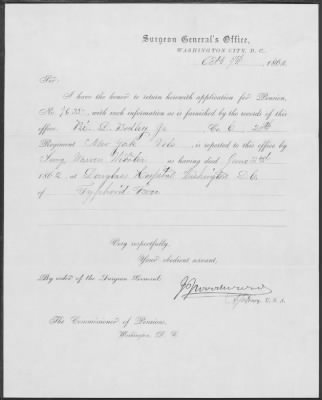 Surgeon General's Office,
WASHINGTON CITY, D. C.,
1862
Sir:
I have the honor to return herewith application for Pension,
No. 7635 with such information as is furnished by the records of this
office. Jr. Co. C,
Regiment New York Vols is reported to this office by
Surg Warren Webster as having died June
1862, at Douglas Hospital Washington D.C.
of Typhoid Fever
Very respectfully,
Your obedient servant,
By order of the Surgeon General:
JJWoodward
U. S. A.
The Commissioner of Pensions,
Washington, D. C.